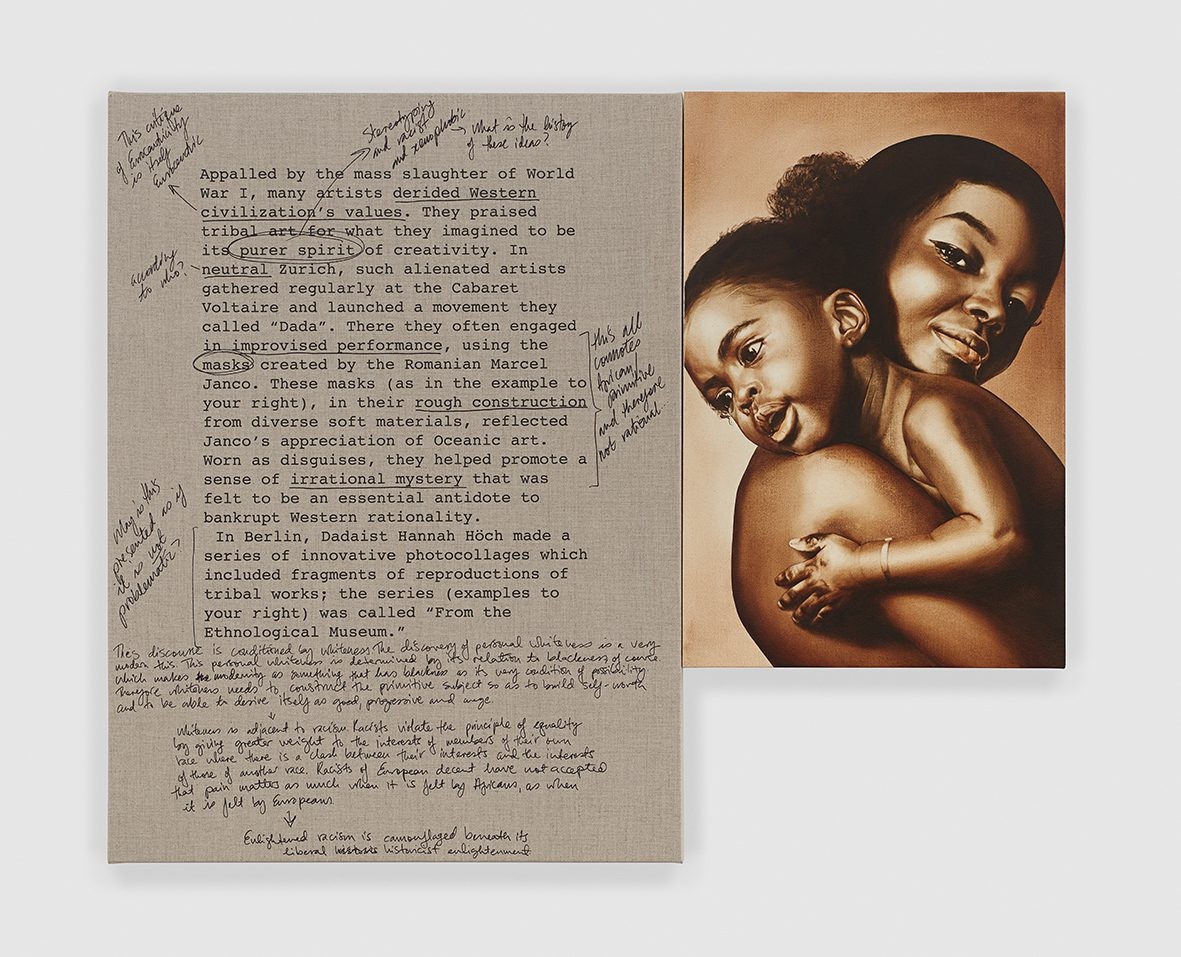 This critique
of Eurocentricity
is itself
Eurocentric
Stereotyping
and racist
and xenophobic
What is the history
of these ideas?
Appalled by the mass slaughter of World
War I, many artists derided Western
civilization's values. They praised
tribal art for what they imagined to be
its purer spirit of creativity. In
neutral Zurich, such alienated artists
gathered regularly at the Cabaret
Voltaire and launched a movement they
called “Dada”. There they often engaged
in improvised performance, using the
masks created by the Romanian Marcel
Janco. These masks (as in the example to
your right), in their rough construction
from diverse soft materials, reflected
Janco's appreciation of Oceanic art.
Worn as disguises, they helped promote a
sense of irrational mystery that was
felt to be an essential antidote to
bankrupt Western rationality.
In Berlin, Dadaist Hannah Höch made a
series of innovative photocollages which
included fragments of reproductions of
tribal works; the series (examples to
your right) was called “From the
Ethnological Museum.”
according
to who?
this all
connotes
African/
primitive
and therefore
not rational.
Why is this
presented as if
it is not
problematic?
This discourse is conditioned by whiteness. The discovery of personal whiteness is a very
modern this. This personal whiteness is determined by its relation to blackness of course
which makes modernity as something that has blackness as its very condition of possibility
therefore whiteness needs to construct the primitive subject so as to build self-worth
and to be able to desire itself as good, progressive and
Whiteness is adjacent to racism. Racists violate the principle of equality
by giving greater weight to the interests of members of their own
race where there is a clash between their interests and the interests
of those of another race. Racists of European decent have not accepted
that pain matters as much when it is felt by Africans, as when
it is felt by Europeans.
Enlightened racism is camouflaged beneath its
liberal historicist enlightenment.